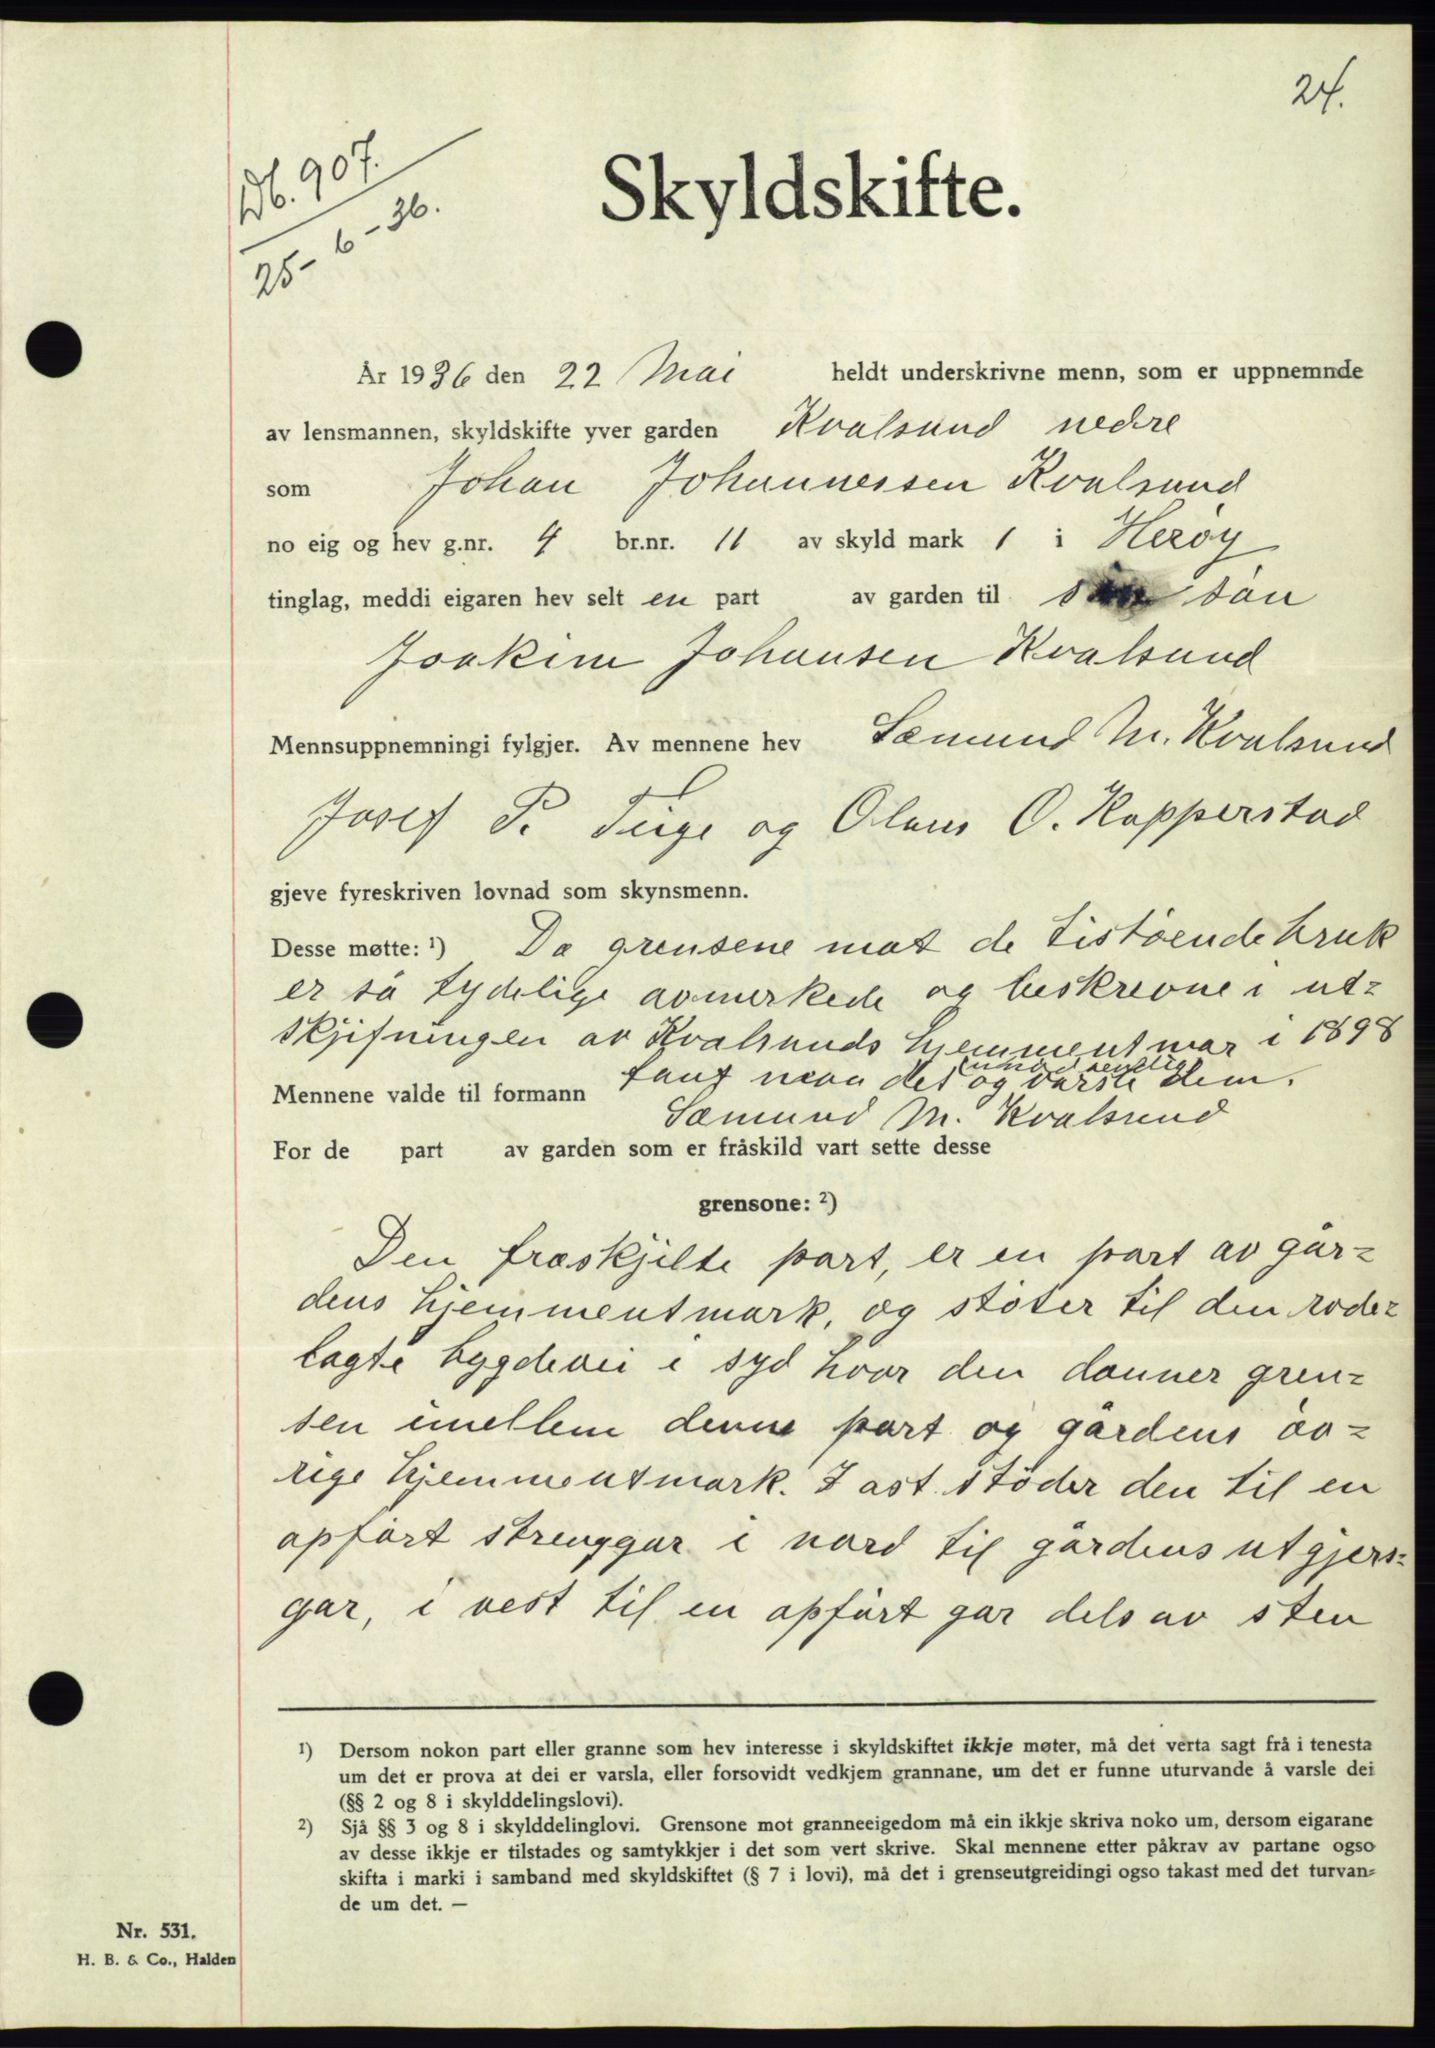 24.
Db. 907.
25-6-36.
Skyldskifte.
År 1936 den 22 Mai heldt underskrivne menn, som er uppnemnde
av lensmannen, skyldskifte yver garden Kvalsund nedre
som Johan Johannessen Kvalsund
no eig og hev g.nr. 4 br.nr. 11 av skyld mark 1 i Herøy
tinglag, meddi eigaren hev selt en part av garden til søn
Joakim Johansen Kvalsund
Mennsuppnemningi fylgjer. Av mennene hev Sæmund M. Kvalsund
Josef P. Teige og Olaus O. Kopperstad
gjeve fyreskriven lovnad som skynsmenn.
Desse møtte: ¹) Da grensene mot de tistøende bruk
er så tydelige avmerkede og beskrevne i ut=
skjifningen av Kvalsunds hjemmeutmar i 1898
fant man det unødvendig
Mennene valde til formann og varsle dem.
Sæmund M. Kvalsund
For de part av garden som er fråskild vart sette desse
grensone: ²)
Den fraskjilte part, er en part av går=
dens hjemmeutmark, og støter til den rode=
lagte bygdevei i syd hvor den danner gren=
sen imellem denne part og gårdens øv=
rige hjemmeutmark. I øst støder den til en
opført strenggar i nord til gårdens utgjers=
gar, i vest til en opført gar dels av sten
¹) Dersom nokon part eller granne som hev interesse i skyldskiftet ikkje møter, må det verta sagt frå i tenesta
um det er prova at dei er varsla, eller forsovidt vedkjem grannane, um det er funne uturvande å varsle dei
(§§ 2 og 8 i skylddelingslovi).
²) Sjå §§ 3 og 8 i skylddelinglovi. Grensone mot granneeigedom må ein ikkje skriva noko um, dersom eigarane
av desse ikkje er tilstades og samtykkjer i det som vert skrive. Skal mennene etter påkrav av partane ogso
skifta i marki i samband med skyldskiftet (§ 7 i lovi), må det i grenseutgreidingi ogso takast med det turvan=
de um det. —
Nr. 531.
H. B. & Co., Halden